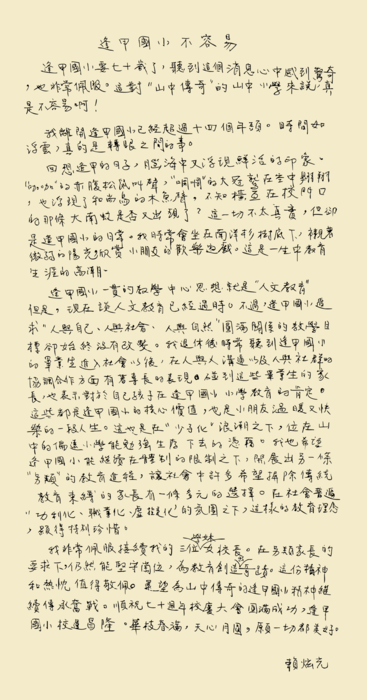 逢甲國小不容易
逢甲國小要七十歲了，聽到這個消息心中感到驚奇
，也非常佩服。這對“山中傳奇”的山中小學來說，真
是不容易啊！
我離開逢甲國小已經超過十四個年頭。時間如
浮雲，真的是轉眼之間的事。
回想逢甲的日子，腦海中又浮現鮮活的印象、
的赤腹松鼠叫聲，的大冠鷲在空中翱翔
，也浮現了和南烏的木魚聲。不知橫在校門口
的那條大南蛇是否又出現了？這一切不太真實，但卻
是逢甲國小的日常。我時常會坐在南洋杉樹底下，襯著
微弱的陽光欣賞小朋友的歡樂遊戲。這是一生中教育
生涯的高潮。
逢甲國小一貫的教學中心思想就是“人文教育”
但是，現在談人文教育已經過時。不過，逢甲國小追
求“人與自己、人與社會、人與自然”圓滿關係的教學目
標卻始終沒有改變。我退休後時常聽到逢甲國小
的畢業生進入社會以後，在人與人溝通以及人與社群的
協調合作方面有著善良的表現。碰到這些畢業生的家
長，也表示對於自己孩子在逢甲國小小學教育的肯定。
這些都是逢甲國小的核心價值，也是小朋友溫暖又快
樂的一段人生。這也是在“少子化”浪潮之下，位在山
中的偏遠小學能勉強生存下去的憑藉。我也希望
逢甲國小能繼續在體制的限制之下，開展出另一條
“另類”的教育道路，讓社會中許多希望掃除傳統
教育束縛的家長有一條多元的選擇。在社會普遍
“功利化、職業化、”的氛圍之下，這樣的教育理念
，顯得特別珍惜。
我非常佩服接續我的三位女校長。在另類家長的
要求下仍然能堅守崗位，為教育創造奇蹟。這份精神
和熱忱值得敬佩。更望為山中傳奇的逢甲國小精神繼
續傳承奮戰。順祝七十週年校慶大會圓滿成功，逢甲
國小校運昌隆。華枝春滿，天心月圓，願一切都美好。
賴